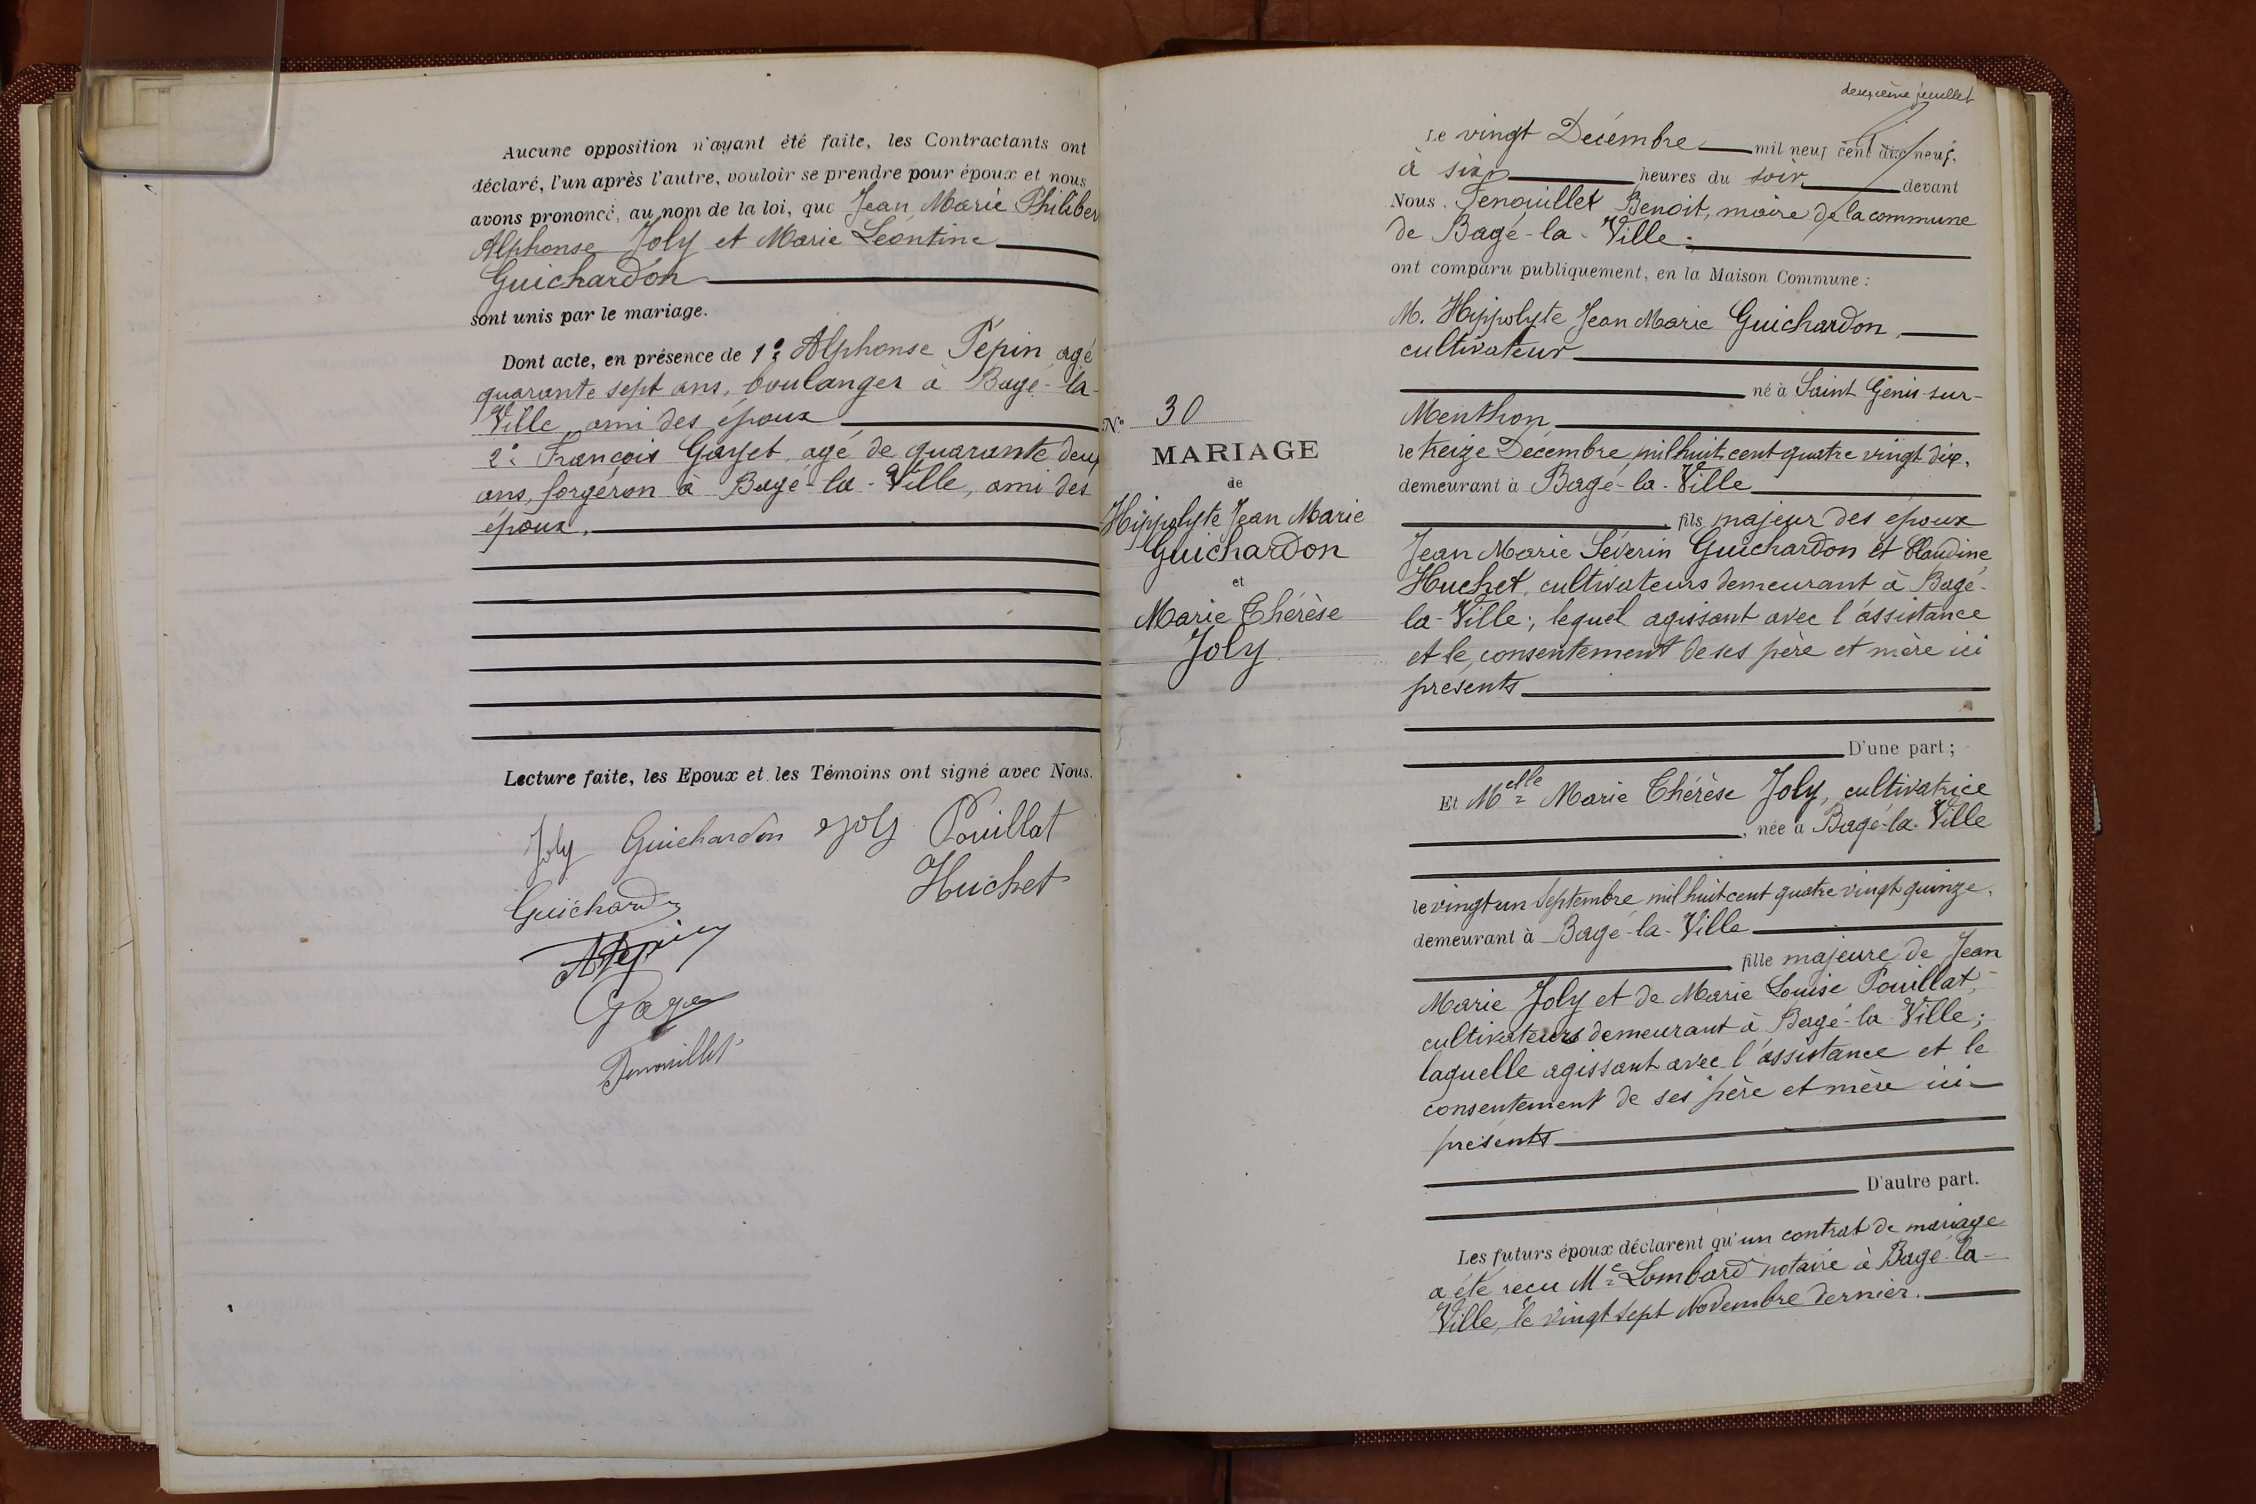 Aucune opposition n'ayant été faite, les Contractants ont
déclaré, l'un après l'autre, vouloir se prendre pour époux et nous
avons prononcé, au nom de la loi, que Jean Marie Philiber
Alphonse Joly et Marie Léontine
Guichardon
sont unis par le mariage.
Dont acte, en présence de 1° Alphonse Pépin agé
quarante sept ans, boulanger à Bagé-la-
Ville, ami des époux
2° François Gayet, agé de quarante deux
ans, forgeron à Bagé-la-Ville, ami des
époux.
Lecture faite, les Epoux et les Témoins ont signé avec Nous.
Joly Guichardon Joly Pouillat
Huchet
Guichardon
APépin
Gayet
Fenouillet
deuxième feuillet
Le vingt Décembre mil neuf cent dix neuf,
à six heures du soir, devant
Nous, Fenouillet Benoit, maire de la commune
de Bagé-la-Ville.
ont comparu publiquement, en la Maison Commune :
M. Hippolyte Jean Marie Guichardon,
cultivateur
né à Saint Genis-sur-
Menthon
le treize Décembre mil huit cent quatre vingt dix,
demeurant à Bagé-la-Ville
fils majeur des époux
Jean Marie Séverin Guichardon et Claudine
Huchet, cultivateurs demeurant à Bagé-
la-Ville; lequel agissant avec l'assistance
et le consentement de ses père et mère ici
présents
D'une part ;
N° 30
MARIAGE
de
Hippolyte Jean Marie
Guichardon
et
Marie Thérèse
Joly
Et Melle Marie Thérèse Joly, cultivatrice
, née à Bagé-la-Ville
le vingt un Septembre mil huit cent quatre vingt quinze,
demeurant à Bagé-la-Ville
fille majeure de Jean
Marie Joly et de Marie Louise Pouillat,
cultivateurs demeurant à Bagé-la-Ville;
laquelle agissant avec l'assistance et le
consentement de ses père et mère ici
présents
D'autre part.
Les futurs époux déclarent qu'un contrat de mariage
a été reçu Me Lombard notaire à Bagé-la-
Ville, le vingt sept Novembre dernier.